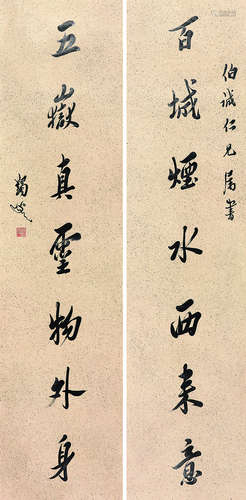 伯誠仁兄屬書
百城煙水西来意
五嶽真靈物外身